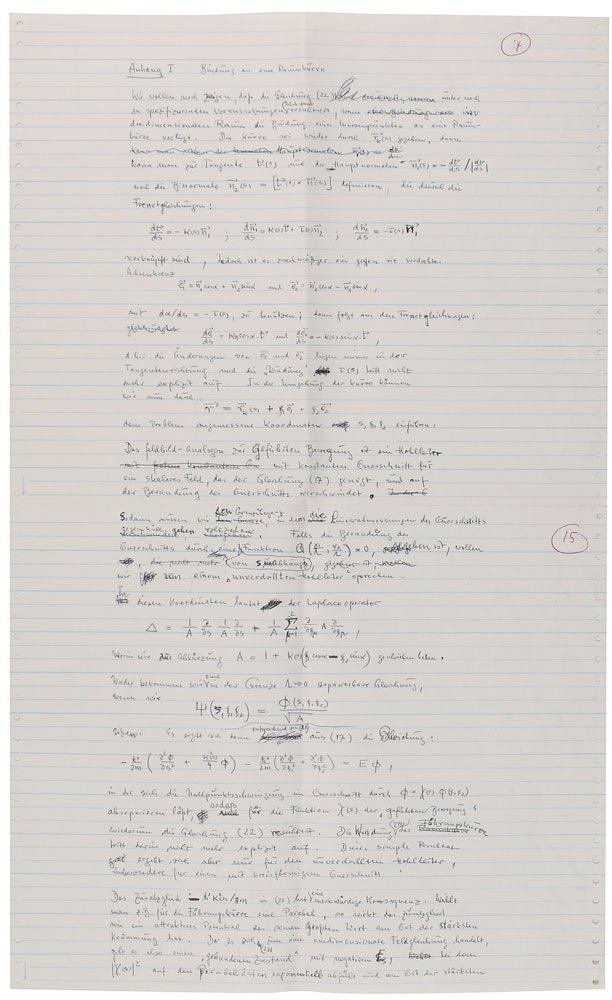 14
Anhang I Bindung an eine Raumkurve
Wir wollen noch zeigen, daß die Gleichung (22) unter noch
zu spezifizierenden Voraussetzungen resultiert, wenn
dreidimensionalen Raum die Bindung eines Massenpunktes an eine Raum-
kurve vorliegt. Die Kurve sei wieder durch gegeben, dann
kann man zur Tangente t(s) und der "Hauptnormalen" n₁(s) = - dt/ds / |dt/ds|
noch die Binormale n₂(s) = [t(s) × n₁(s)] definieren, die durch die
Frenetgleichungen:
dt/ds = - K(s) n₁ ; dn₁/ds = K(s) t + τ(s) n₂ ; dn₂/ds = - τ(s) n₁
verknüpft sind, jedoch ist es zweckmäßiger ein gegen sie verdrehtes
Achsenkreuz
mit dα/ds = - τ(s), zu benützen; dann folgt aus den Frenetgleichungen:
d.h.: die Änderungen von und liegen immer in der
Tangentenrichtung und die "Windung" τ(s) tritt nicht
mehr explizit auf. In der Umgebung der Kurve können
wir nun durch
dem Problem angemessene Koordinaten einführen:
Das Feldbild-Analogon zur Geführten Bewegung ist ein Hohlleiter
mit konstanten Querschnitt für
ein skalares Feld, das der Gleichung (17) genügt, und auf
der Berandung des Querschnitts verschwindet.
Sodann müssen wir den Grenzübergang, in dem die Linearabmessungen des Querschnitts
gehen vollziehen. Falls die Berandung des
Querschnitts durch eine Funktion = 0, ist, wollen
15
wir einem "unverdrillten Hohlleiter" sprechen.
In diesen Koordinaten lautet der Laplaceoperator
Δ = 1/A ∂/∂s 1/A ∂/∂s + 1/A Σ ∂/∂ξ A ∂/∂ξ ,
Worin wir zur Abkürzung A = 1 + K(s) (ξ cosα - ξ sinα) geschrieben haben.
Wieder bekommen wir eine in der Grenze Λ→0 separierbare Gleichung,
wenn wir
Ψ(s, ξ₁ ξ₂) = Φ(s, ξ₁, ξ₂) / √A
setzen. Es ergibt sich dann aus (17) die Gleichung:
- ℏ²/2m (∂²Φ/∂s² + K(s)²/4 Φ) - ℏ²/2m (∂²Φ/∂ξ₁² + ∂²Φ/∂ξ₂²) = E Φ ,
in der sich die Nullpunktsschwingung im Querschnitt durch Φ = χ(s) · φ(ξ₁, ξ₂)
abseparieren läßt, sodaß für die Funktion χ(s) der "geführten Bewegung"
wiederum die Gleichung (22) resultiert. Die Windung der Führungskurve
tritt darin nicht mehr explizit auf. Dieses simple Resultat
ergibt sich aber nur für den unverdrillten Hohlleiter,
insbesondere für einen mit kreisförmigem Querschnitt!
Das Zusatzglied in (22) hat eine merkwürdige Konsequenz. Wählt
man z.B. für die Führungskurve eine Parabel, so wirkt das Zusatzglied
wie ein attraktives Potential das seinen größten Wert am Ort der stärksten
Krümmung hat. Da es sich um eine eindimensionale Feldgleichung handelt,
gibt es also einen "gebundenen Zustand" mit negativem E, bei dem
|χ(s)|² auf den Parabelästen exponentiell abfällt und am Ort der stärksten